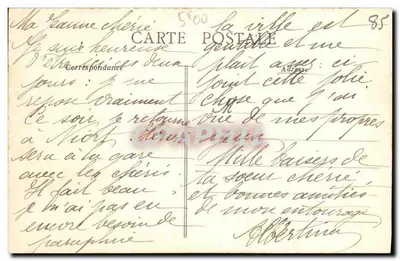 Ma Jeanne chérie
5.00
85
CARTE POSTALE
Correspondance
Adresse
suis heureuse
deux
jours : je me
repose vraiment
Ce soir je retourne
à Niort
sera à la gare
avec les chéris
Il fait beau
je n'ai pas eu
encore besoin de
parapluie
La ville est
gentille et me
plait assez : ci
joint cette jolie
chose que j'ai
vue de mes propres
yeux
Mille baisers de
ta sœur chérie
et bonnes amitiés
de mon entourage
Albertine